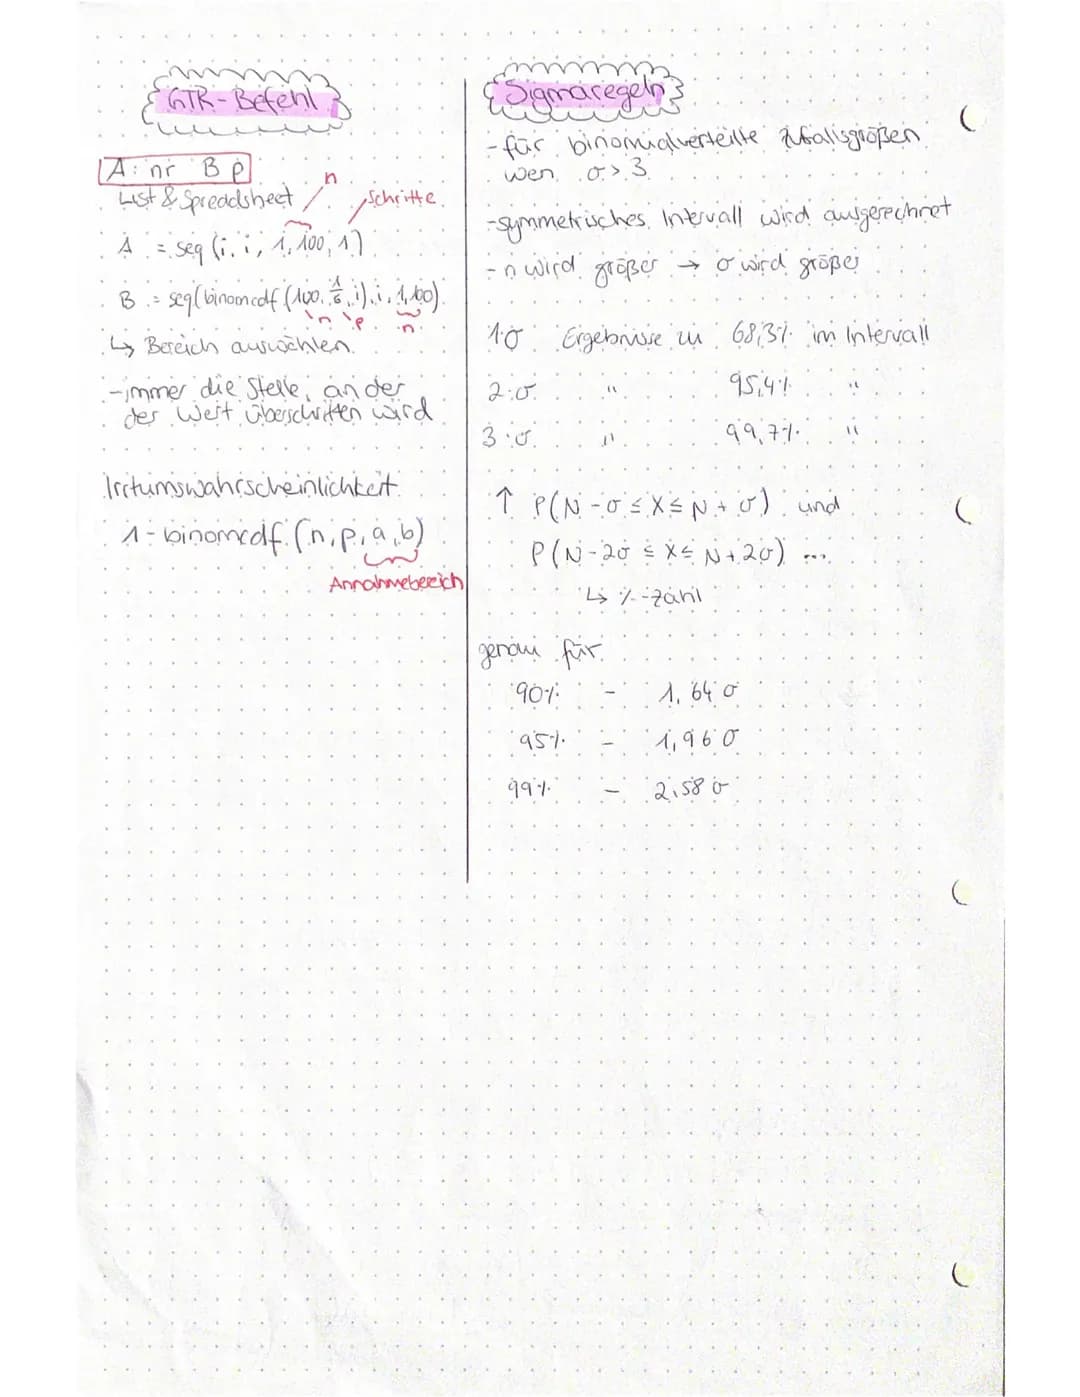 GTR-Befehl
A: nr B p
List & Spreadsheet
n
Schritte
A := seq (i, i, 1, 100, 1)
B := seq(binomcdf (100, 1/6, i), i, 1, 100)
n p n
↳ Bereich auswählen
- immer die Stelle, an der
der Wert überschritten wird
Irrtumswahrscheinlichkeit
1 - binomcdf (n, p, a, b)
Annahmebereich
Sigmaregeln
- für binomialverteilte Zufallsgrößen
wen σ > 3
- symmetrisches Intervall wird ausgerechnet
- n wird größer → σ wird größer
1·σ Ergebnisse zu 68,3% im Intervall
2·σ " 95,4% "
3·σ " 99,7% "
↑ P(N - σ ≤ X ≤ N + σ) und
P(N - 2σ ≤ X ≤ N + 2σ) ...
↳ %-zahl
genau für
90% - 1,64 σ
95% - 1,96 σ
99% - 2,58 σ